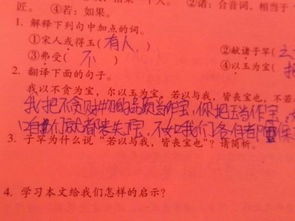 匠。 ④若：如果。 ②诸：合音词，相当于
1．解释下列句中加点的词。
①宋人或得玉(有人) ②献诸子罕(
③弗受(不) ④以玉为宝(
2．翻译下面的句子。
我以不贪为宝，尔以玉为宝，若以与我，皆丧宝也，不若人有其宝
我把不贪财物的品质当作宝，你把玉当作宝
咱们就都丧失宝，不如我们各自有
3．子罕为什么说“若以与我，皆丧宝也”？请简析。
4．学习本文给我们怎样的启示？